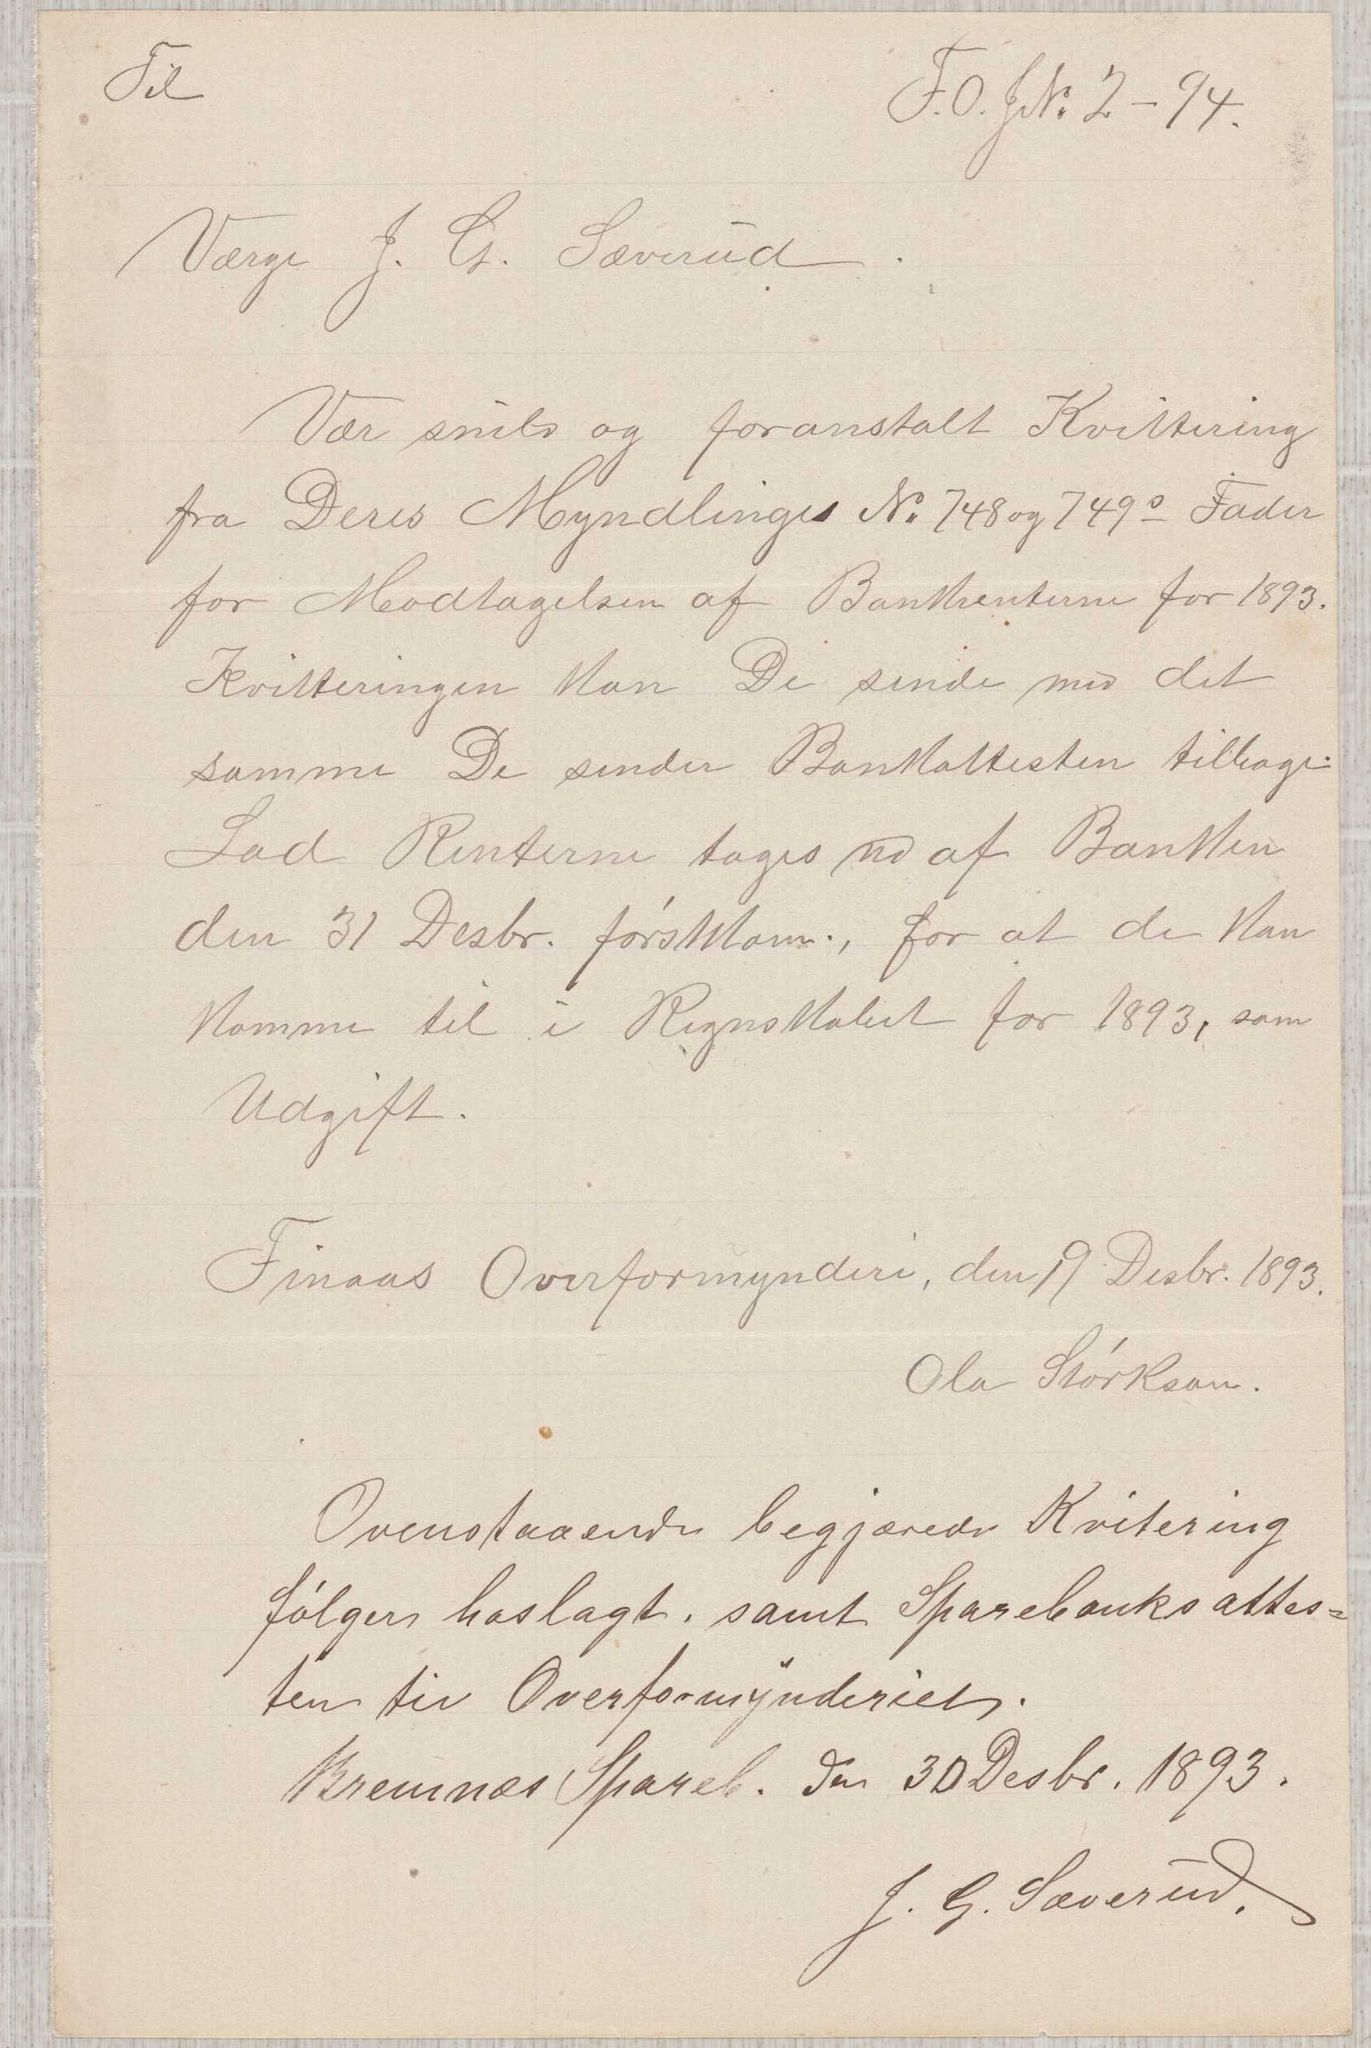 Til
F. O. J.№ 2 - 94.
Værge J. G. Sæverud.
Vær snild og foranstalt Kvittering
fra Deres Myndlinges № 748 og 749s Fader
for Modtagelsen af Bankrenterne for 1893.
Kvitteringen kan De sende med det
samme De sender Bankattesten tilbage.
Lad Renterne tages ud af Banken
den 31 Desbr. førstkom., for at de kan
komme til i Regnskabet for 1893, som
Udgift.
Finaas Overformynderi, den 19 Desbr. 1893.
Ola Størkson.
Ovenstaaende begjærede Kvitering
følger hoslagt, samt Sparebanksattes=
ten til Overformynderiet.
Bremnæs Spareb. den 30 Desbr. 1893.
J. G. Sæverud.